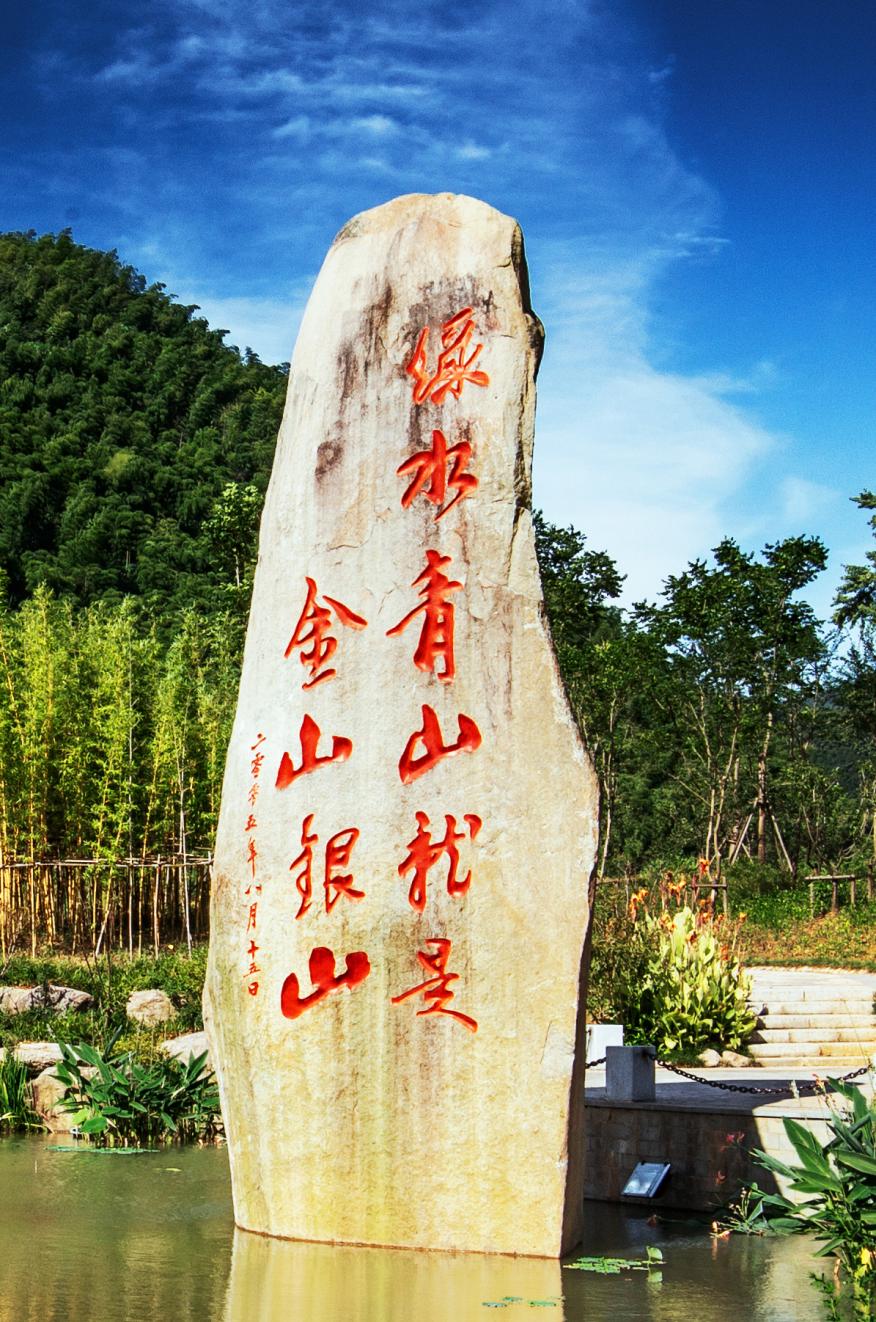 绿水青山就是
金山銀山
二零零五年八月十五日